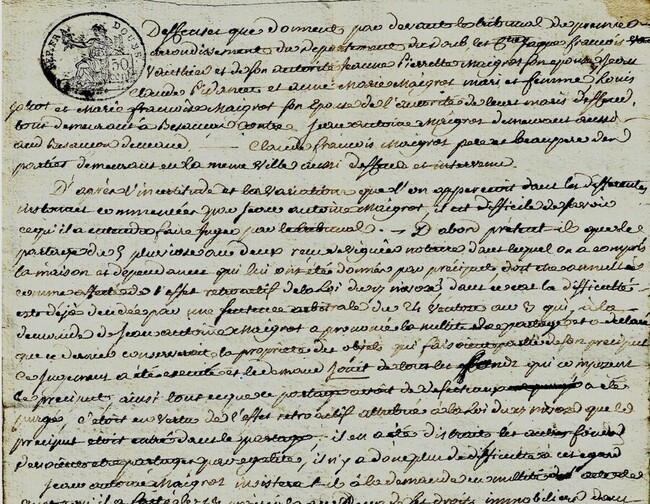 REP. FRA. DOUBS
50 cent
Deffenses que donnent par devant le tribunal de premier
arrondissement du departement du doub les Cens Jaque françois
Vauthier et de son autorité jeanne Pierrette Maigrot son epouse, Pierre
Claude Pidancet et anne Marie Maigrot mari et femme Louis
joliot et Marie françoise Maigrot son epouse de l'autorité de leurs maris deffend.
tous demeurant à Besancon contre Jean antoine Maigrot demeurant aussi
au Besancon demand. Claude françois Maigrot pere et beaupere des
parties demeurant en la meme Ville aussi deffend. et interven.
D'après l'incertitude et la variation que l'on apperçoit dans les differentes
instances commencées par jean antoine Maigrot, il est difficile de savoir
ce qu'il a entendu faire juger par le tribunal. D'abord prétend il que le
partage du 5 pluviose an deux reçu notaire dans lequel on a compris
la maison et dependance qui lui ont été donnés par préciput doit etre annullé
comme de l'effet retroactif de la Loi du 17 nivose, dans ce cas la difficulté
est déjà decidée par une sentence arbitrale du 24 ventose an 3 qui, à la
demande de jean antoine Maigrot a prononcé la nullité de ce partage et a declaré
que ce dernier conserveroit la propriété des objets qui faisoient partie de son préciput
ce jugement a été executé et le demand. jouit de tous les fonds qui composent
ce préciput ainsi tout ce que ce partage avoit de defectueux a été
purgé. c'étoit en vertu de l'effet retroactif attribué à la Loi du 17 nivose que le
préciput etoit entré dans le partage : il en a été distrait les autres fonds
partagés par egalité, il n'y a donc plus de difficulté à cet egard
jean antoine Maigrot insistera t-il à la demande en nullité
droits immobiliers dans